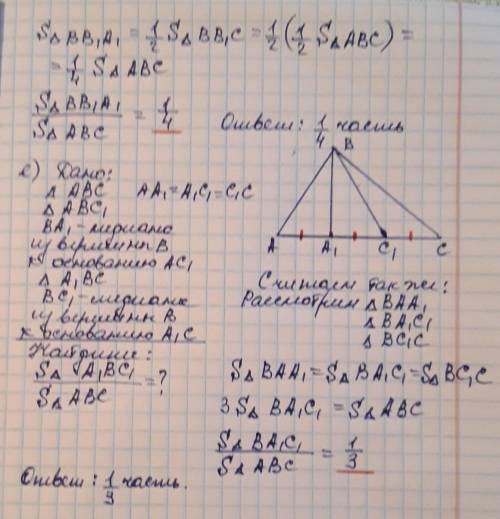 S△BB₁A₁ = 1/2 S△BB₁C = 1/2 (1/2 S△ABC) =
= 1/4 S△ABC
S△BB₁A₁ / S△ABC = 1/4
Ответ: 1/4 часть
с) Дано:
△ ABC AA₁=A₁C₁=C₁C
△ ABC₁
BA₁ - медиана
из вершины B
к основанию AC₁
△ A₁BC
BC₁ - медиана
из вершины B
к основанию A₁C
Найдите:
S△ A₁BC₁ / S△ ABC = ?
B
A A₁ C₁ C
Считаем так же:
Рассмотрим △BAA₁
△BA₁C₁
△BC₁C
S△BAA₁ = S△BA₁C₁ = S△BC₁C
3S△BA₁C₁ = S△ABC
S△BA₁C₁ / S△ABC = 1/3
Ответ: 1/3 часть.